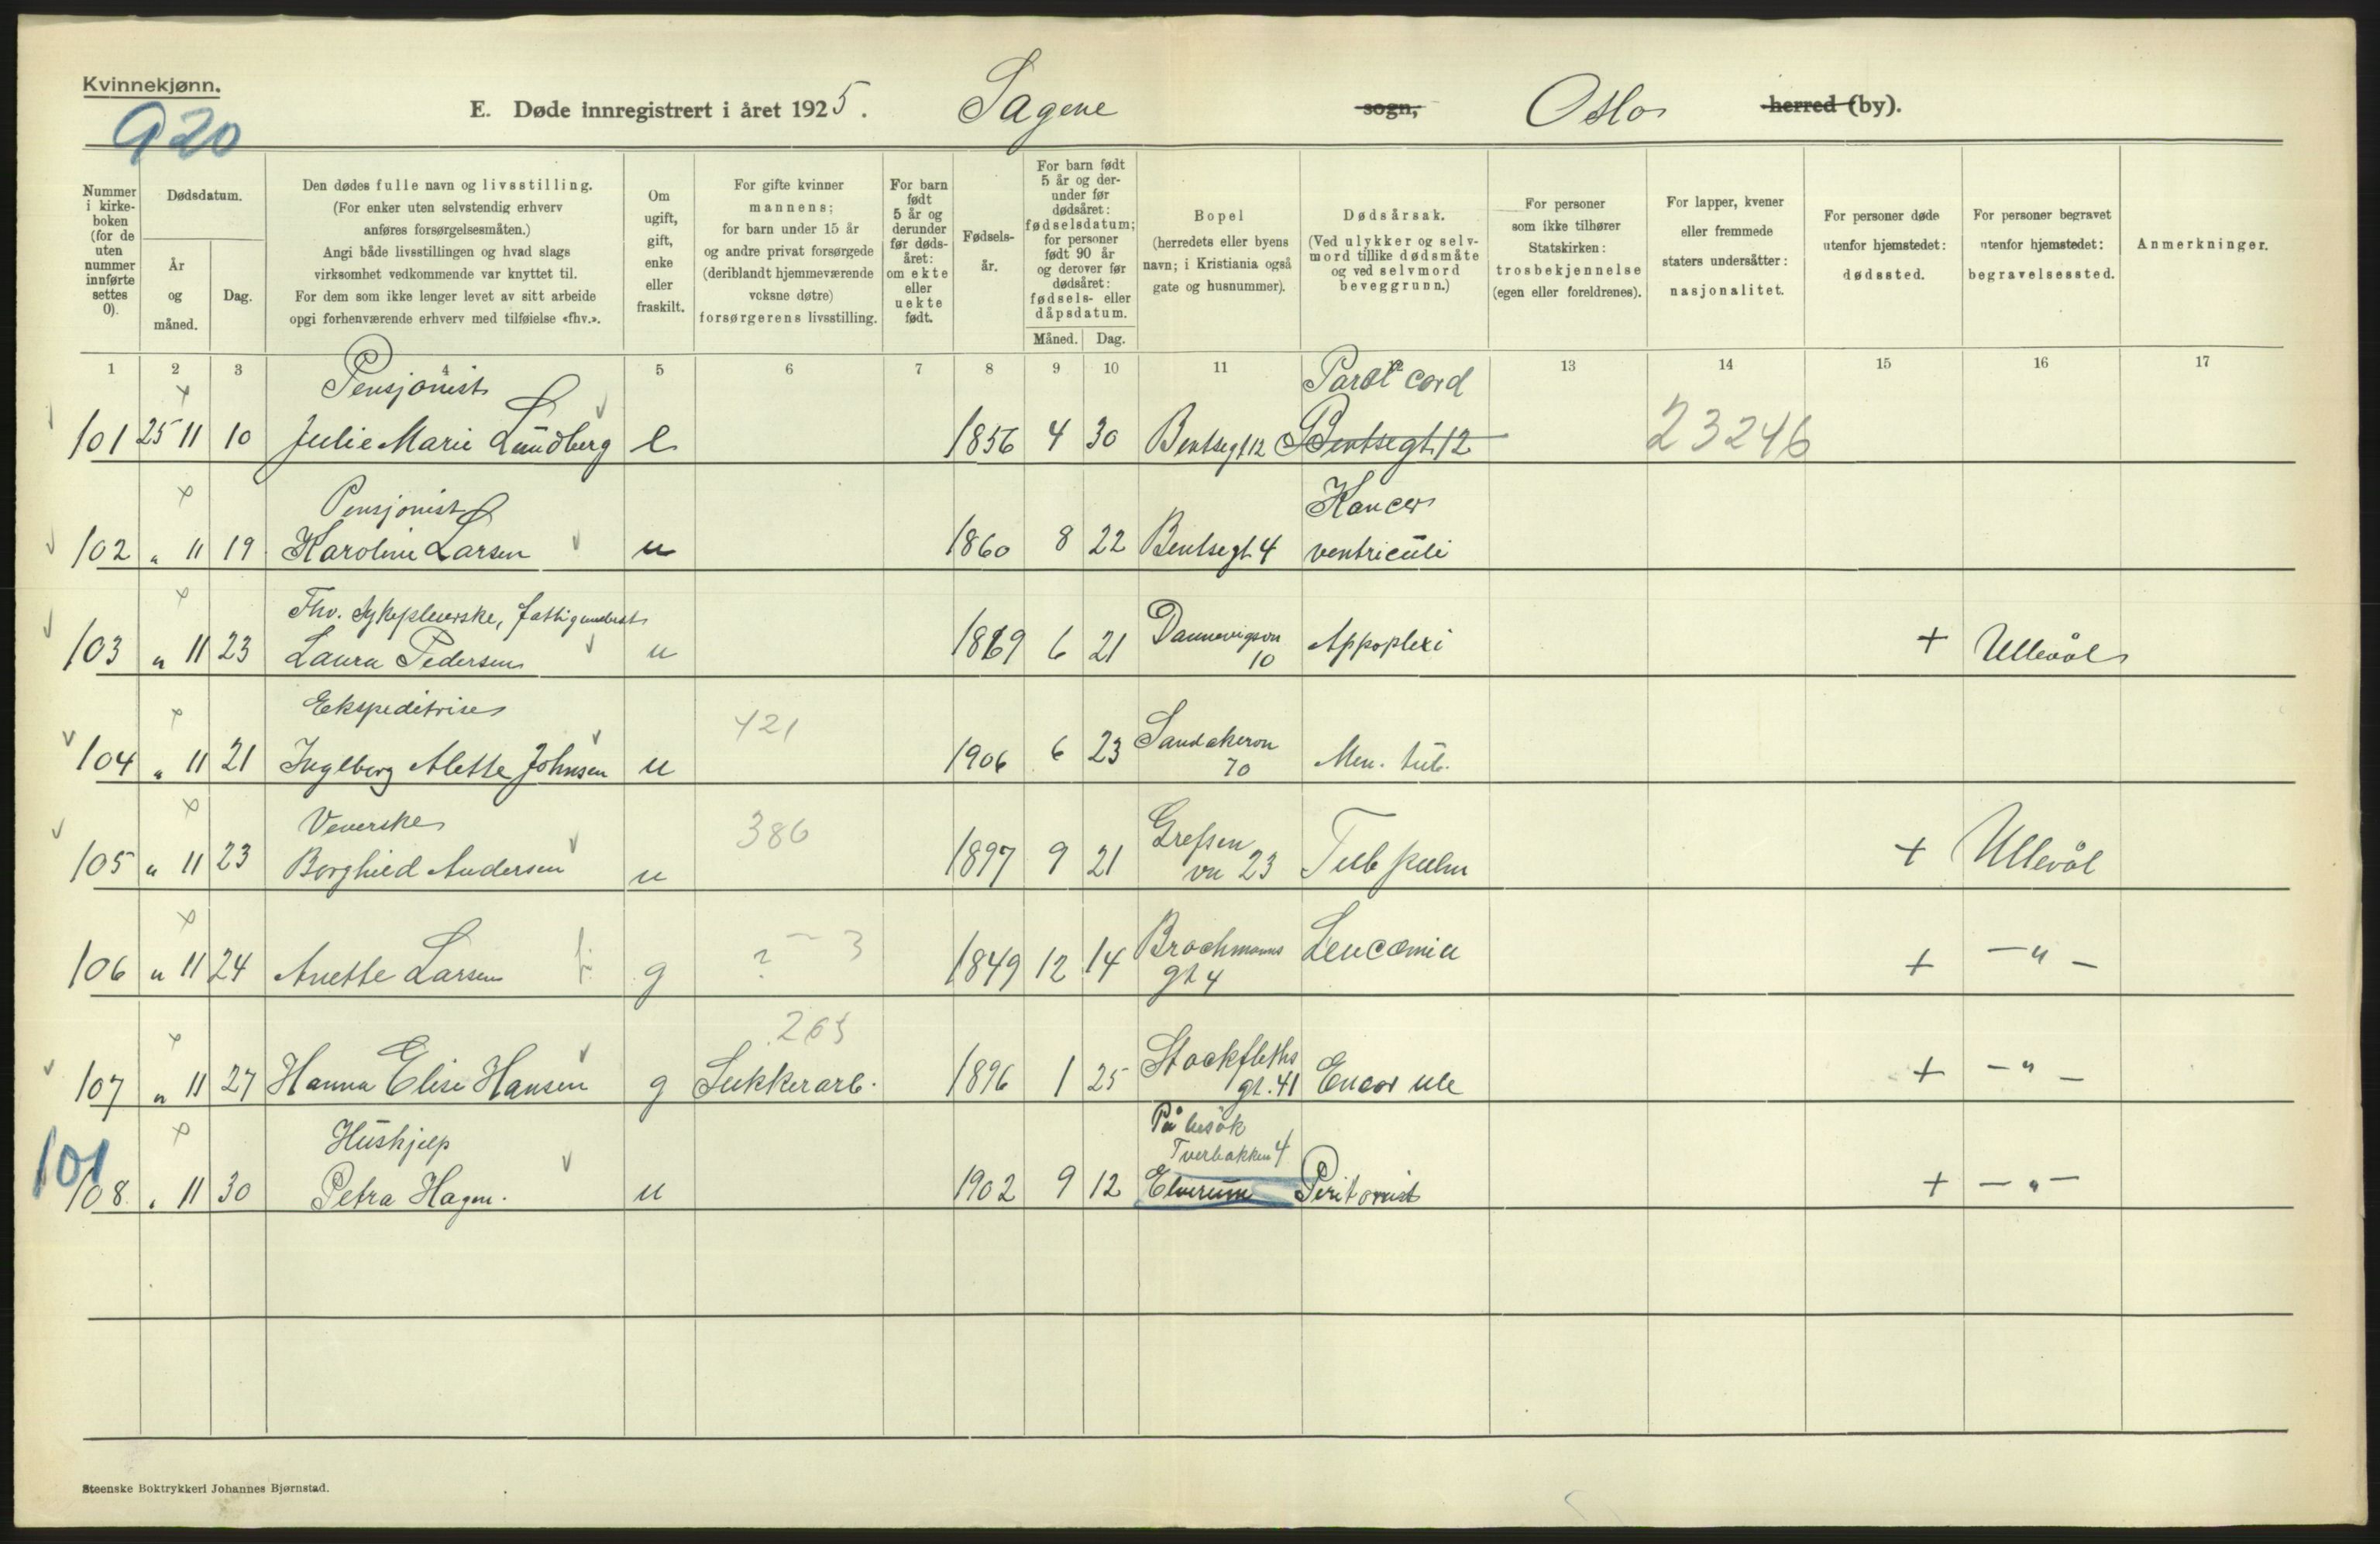 Kvinnekjønn.
920
E. Døde innregistrert i året 1925. Sagene sogn, Oslo herred (by).
Nummer i kirke-boken (for de uten nummer innførte settes 0).
Dødsdatum.
År og måned.
Dag.
Den dødes fulle navn og livsstilling.
(For enker uten selvstendig erhverv
anføres forsørgelsesmåten.)
Angi både livsstillingen og hvad slags
virksomhet vedkommende var knyttet til.
For dem som ikke lenger levet av sitt arbeide
opgi forhenværende erhverv med tilføielse «fhv.».
Om ugift, gift, enke eller fraskilt.
For gifte kvinner
mannens;
for barn under 15 år
og andre privat forsørgede
(deriblandt hjemmeværende
voksne døtre)
forsørgerens livsstilling.
For barn født 5 år og derunder før døds-året: om ekte eller uekte født.
Fødsels-år.
For barn født 5 år og der-under før dødsåret: fødselsdatum; for personer født 90 år og derover før dødsåret: fødsels- eller dåpsdatum.
Måned. Dag.
Bopel
(herredets eller byens
navn; i Kristiania også
gate og husnummer).
Dødsårsak.
(Ved ulykker og selv-
mord tillike dødsmåte
og ved selvmord
beveggrunn.)
For personer
som ikke tilhører
Statskirken:
trosbekjennelse
(egen eller foreldrenes).
For lapper, kvener
eller fremmede
staters undersåtter:
nasjonalitet.
For personer døde
utenfor hjemstedet:
dødssted.
For personer begravet
utenfor hjemstedet:
begravelsessted.
Anmerkninger.
1 2 3 4 5 6 7 8 9 10 11 12 13 14 15 16 17
Pensjonist Paral cord
101 25 11 10 Julie Marie Lundberg e 1856 4 30 Bentsegt 12 Bentsegt. 12 23246
Pensjonist Kancer
102 " 11 19 Karoline Larsen u 1860 8 22 Bentsegt. 4 ventriculi
Fhv. Sykepleierske, fattigunderst.
103 " 11 23 Laura Pedersen u 1869 6 21 Dannevigsvn 10 Appoplexi + Ullevål
Ekspeditrise 421
104 " 11 21 Ingeborg Alette Johnsen u 1906 6 23 Sandakervn 70 Men. tub.
Veverske 386
105 " 11 23 Borghild Andersen u 1897 9 21 Grefsen vn 23 Tub pulm + Ullevål
106 " 11 24 Anette Larsen g ? 3 1849 12 14 Brochmanns gt 4 Leucæmia + — " —
263
107 " 11 27 Hanna Elise Hansen g Sukkerarb. 1896 1 25 Stockfleths gt. 41 + — " —
Hushjelp På besøk Tverbakken 4
101
108. " 11 30 Petra Hagen. u 1902 9 12 Elverum Peritonit + — " —
Steenske Boktrykkeri Johannes Bjørnstad.